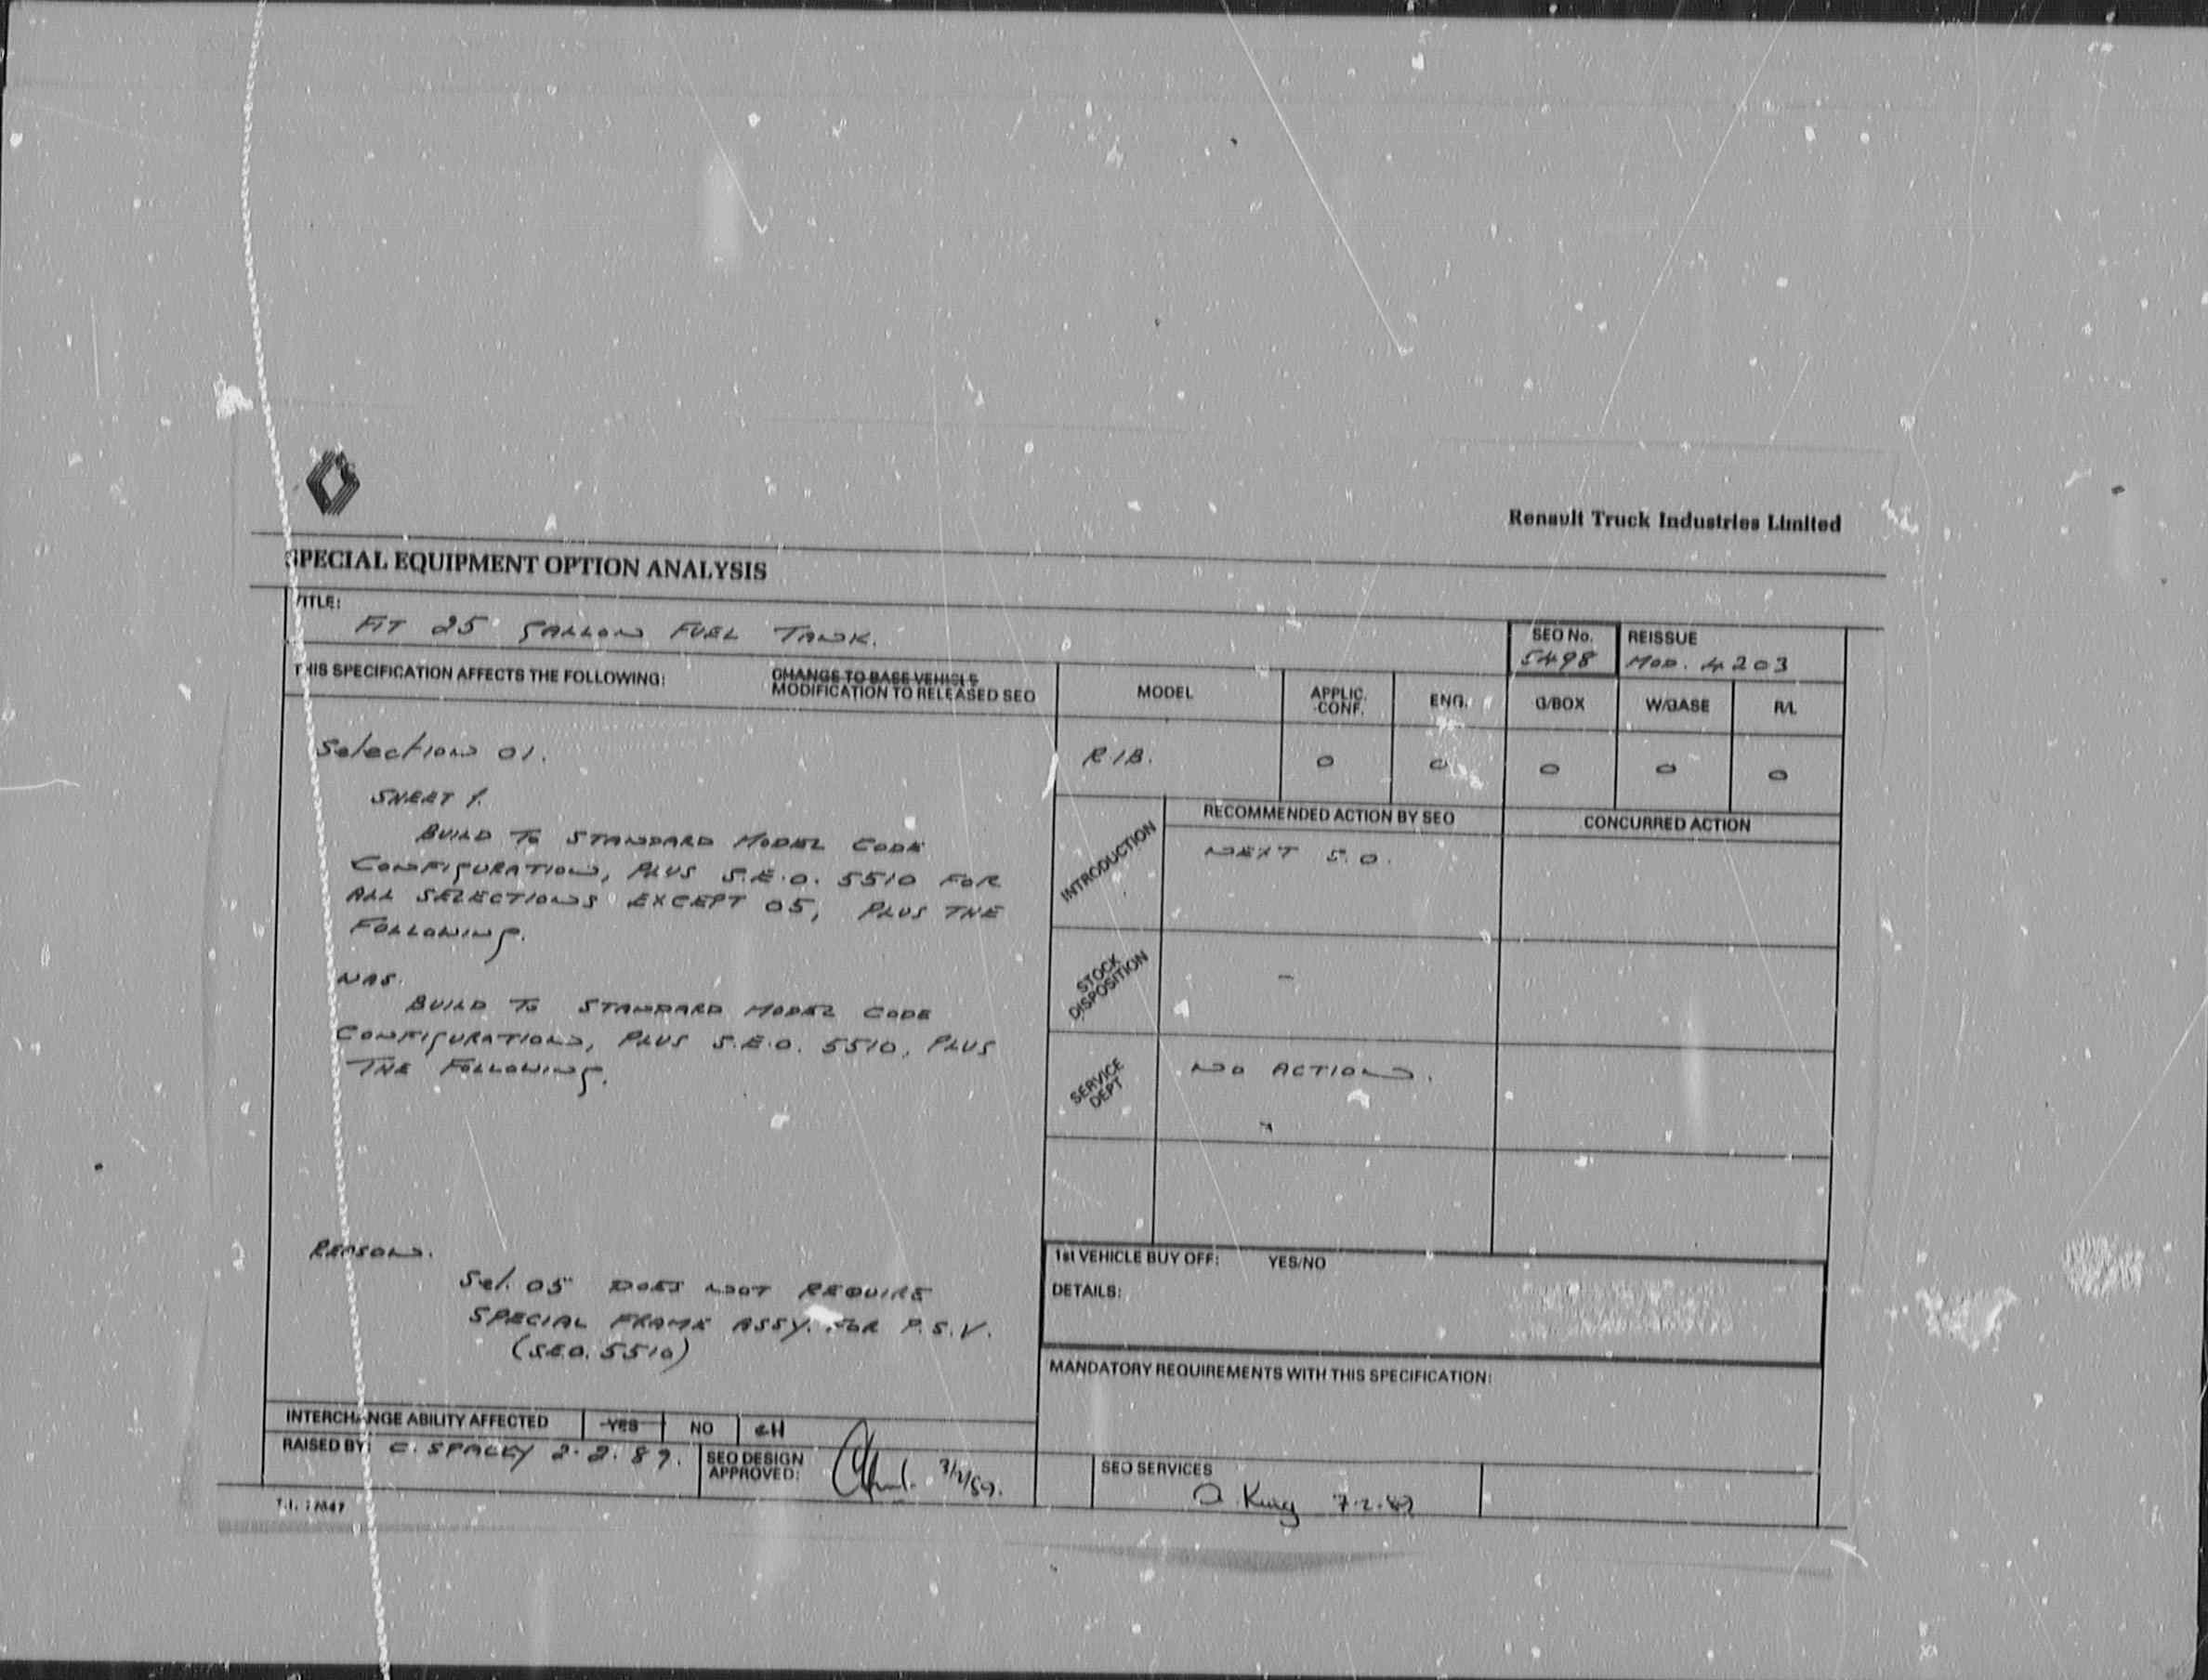 Renault Truck Industries Limited
SPECIAL EQUIPMENT OPTION ANALYSIS
TITLE:
FIT 25 GALLON FUEL TANK.
SEO No.
5498
REISSUE
MOD. 4203
THIS SPECIFICATION AFFECTS THE FOLLOWING:
CHANGE TO BASE VEHICLE
MODIFICATION TO RELEASED SEO
MODEL
APPLIC. CONF.
ENG.
G/BOX
W/BASE
R/L
Selection 01.
R1B.
O O O O O
SHEET 1.
BUILD TO STANDARD MODEL CODE
CONFIGURATION, PLUS S.E.O. 5510 FOR
ALL SELECTIONS EXCEPT 05, PLUS THE
FOLLOWING.
WAS.
BUILD TO STANDARD MODEL CODE
CONFIGURATIONS, PLUS S.E.O. 5510, PLUS
THE FOLLOWING.
REASON.
Sel. 05 DOES NOT REQUIRE
SPECIAL FRAME ASSY. FOR P.S.V.
(S.E.O. 5510)
RECOMMENDED ACTION BY SEO
CONCURRED ACTION
INTRODUCTION
NEXT S.O.
STOCK DISPOSITION
-
SERVICE DEPT
NO ACTION.
1st VEHICLE BUY OFF: YES/NO
DETAILS:
MANDATORY REQUIREMENTS WITH THIS SPECIFICATION:
INTERCHANGE ABILITY AFFECTED YES NO
RAISED BY: C. SPACEY 2.2.89.
SEO DESIGN APPROVED:
SEO SERVICES
D. King 7.2.89